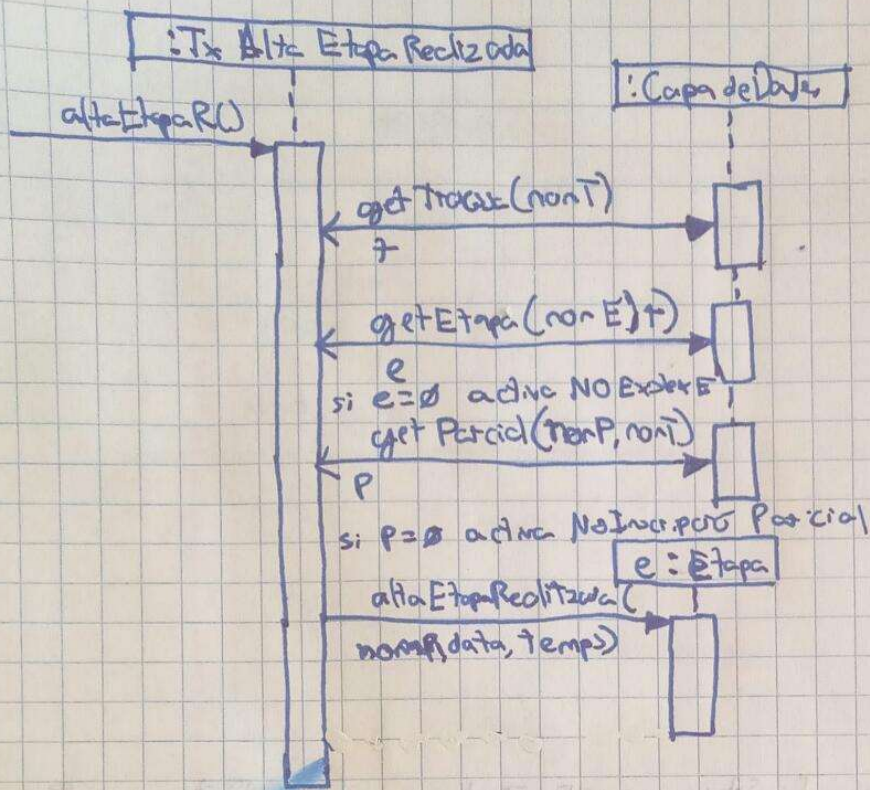 :Tx Alta Etapa Realizada
:Capa de Dades
altaEtapaR()
get Trocut(nonT)
t
getEtapa(nonE, t)
e
si e=ø activa NO ExisteixE
get Parcial(nomP, nomT)
P
si P=ø activa NoInscripció Parcial
e : Etapa
alta EtapaRealitzada(
nomP, data, temps)